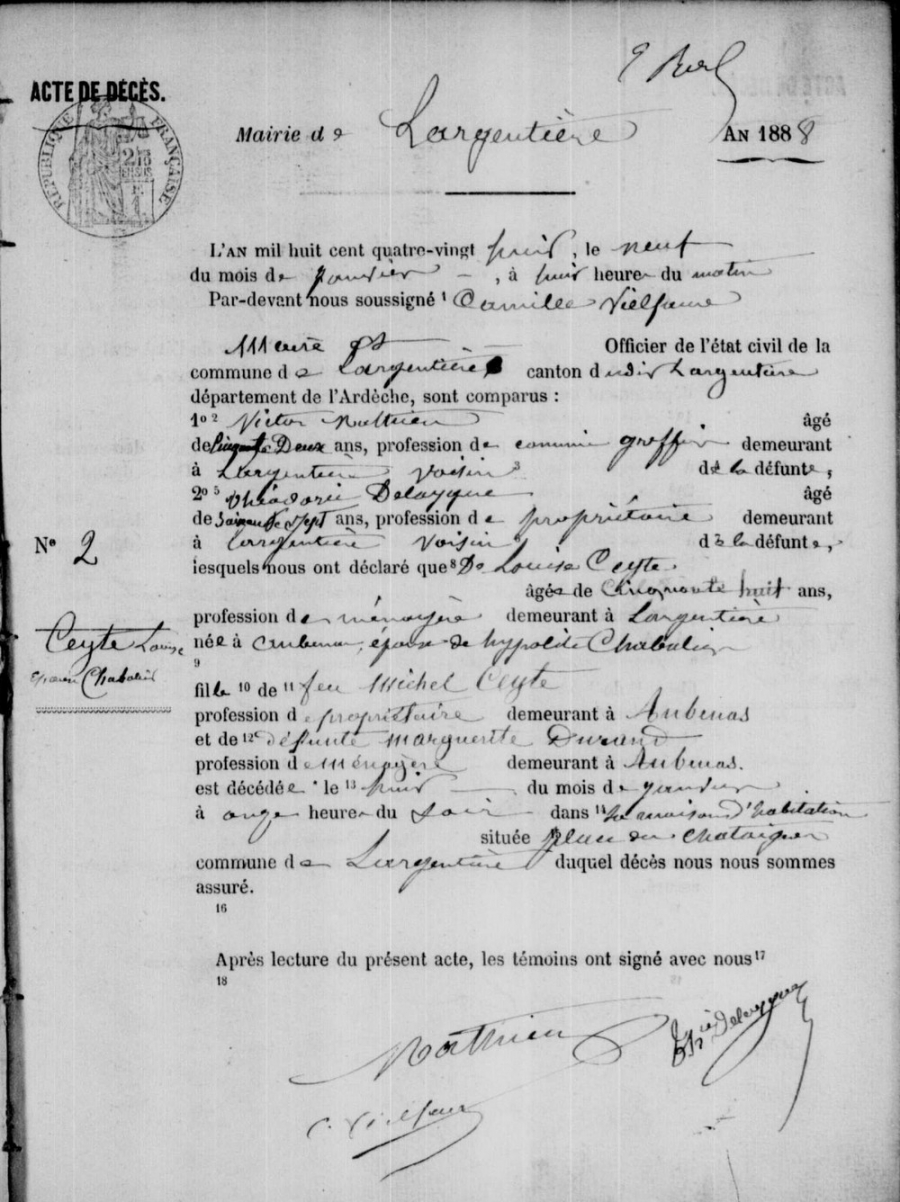 ACTE DE DÉCÈS.
RÉPUBLIQUE FRANÇAISE
Mairie de Largentière AN 1888
L'AN mil huit cent quatre-vingt huit, le neuf
du mois de janvier, à huit heures du matin
Par-devant nous soussigné 1 Camille Vielfaure
Maire et Officier de l'état civil de la
commune de Largentière canton dudit Largentière
département de l'Ardèche, sont comparus :
1o 2 Victor Mathieu âgé
de Cinquante Deux ans, profession de commis greffier demeurant
à Largentière voisin 3 de la défunte,
2o 5 Théodore Delaygue âgé
de Soixante sept ans, profession de propriétaire demeurant
à Largentière voisin de la défunte,
No 2
lesquels nous ont déclaré que 8 De Louise Ceyte
âgée de Cinquante huit ans,
profession de ménagère demeurant à Largentière
Ceyte Louise
née à aubenas, épouse de hypolite Chabalier
épouse Chabalier
9
fille 10 de 11 feu Michel Ceyte
profession de propriétaire demeurant à Aubenas
et de 12 défunte marguerite Durand
profession de Ménagère demeurant à Aubenas.
est décédée le 13 huit du mois de janvier
à onze heures du soir dans 14 sa maison d'habitation
située place du chataignier
commune de Largentière duquel décès nous nous sommes
assuré.
16
Après lecture du présent acte, les témoins ont signé avec nous 17
18
Mathieu
Delaygue
C. Vielfaure